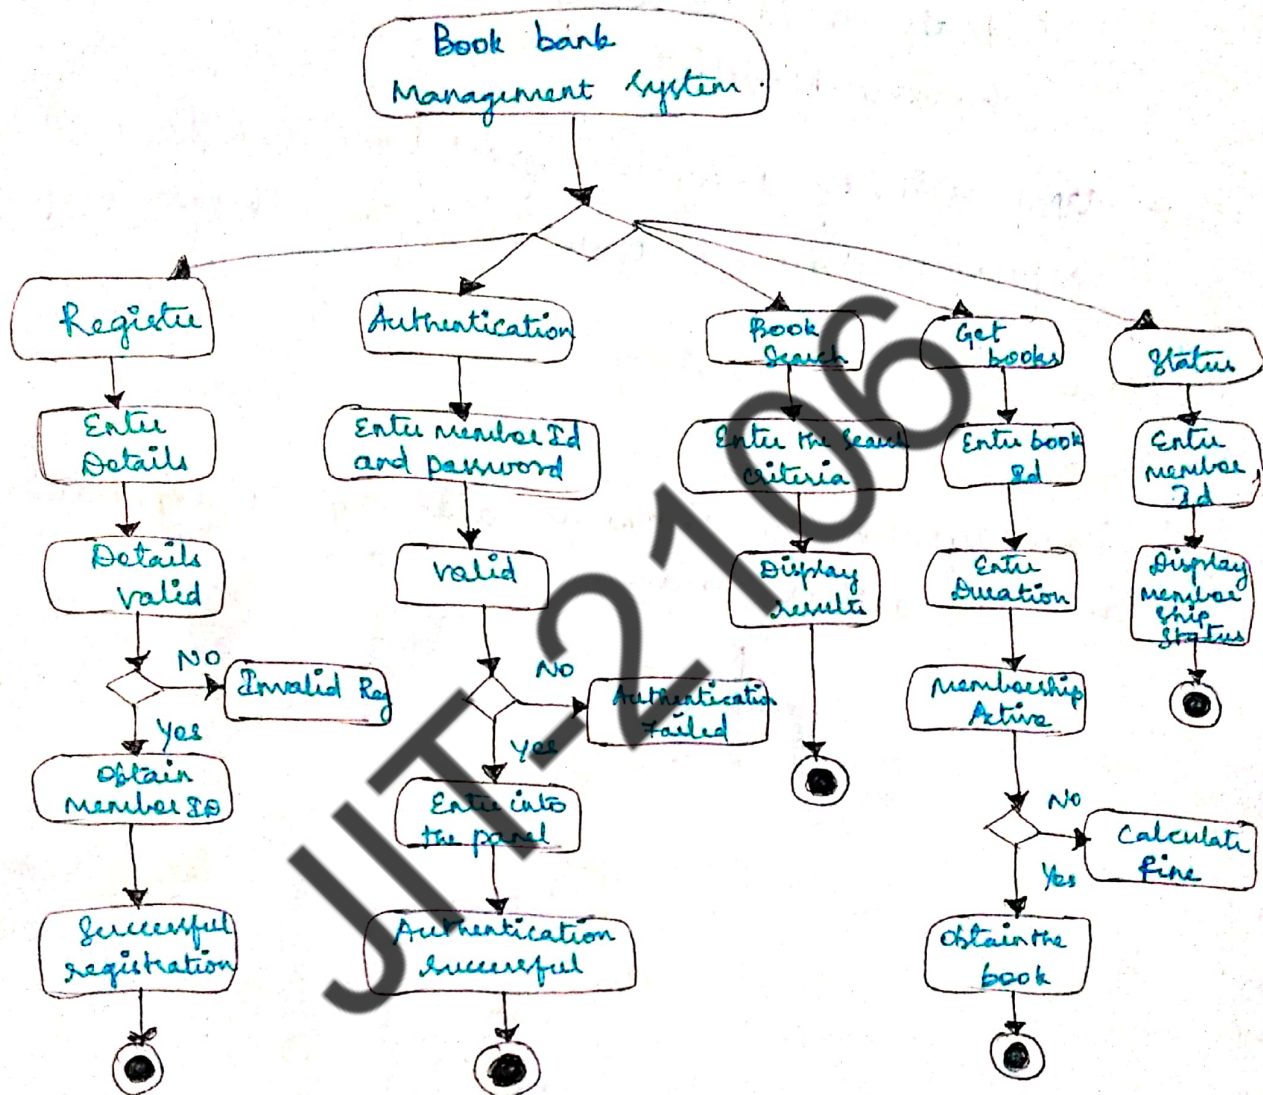 Book bank
Management System.
Register
Enter
Details
Details
Valid
NO
Invalid Reg
Yes
Obtain
Member ID
Successful
registration
Authentication
Enter member Id
and password
Valid
No
Authentication
Failed
Yes
Enter into
the panel
Authentication
successful
Book
Search
Enter the search
criteria
Display
results
Get
books
Enter book
Id
Enter
Duration
Membership
Active
No
Calculate
fine
Yes
Obtain the
book
Status
Enter
member
Id
Display
member
ship
status
JIT-2106